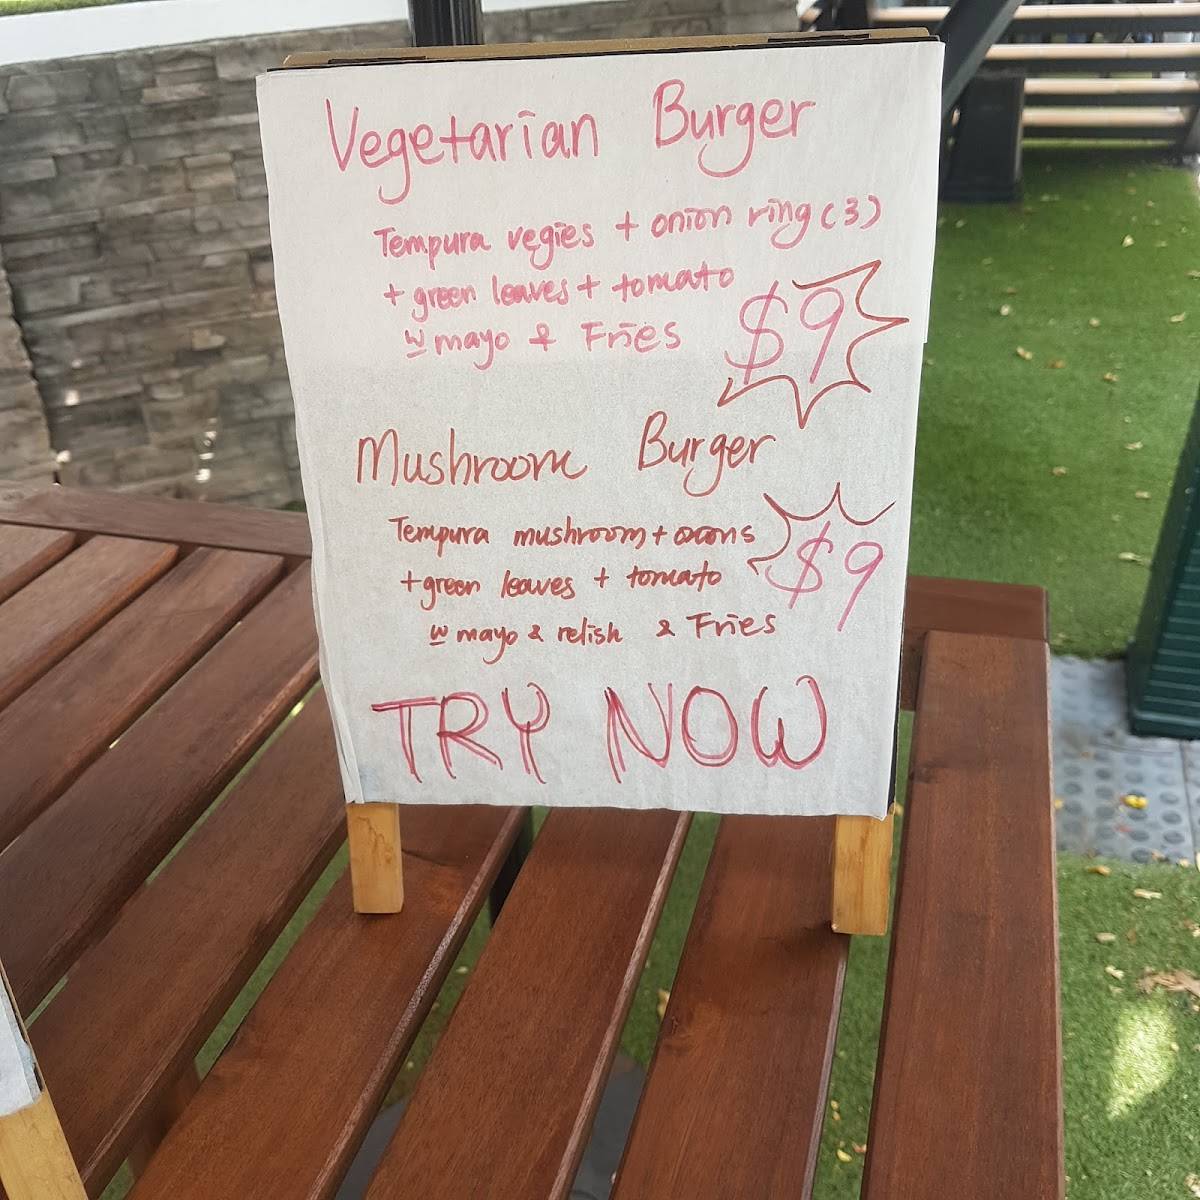 Vegetarian Burger
Tempura vegies + onion ring (3)
+ green leaves + tomato
w mayo & Fries
$9
Mushroom Burger
Tempura mushroom + onions
+ green leaves + tomato
w mayo & relish & Fries
$9
TRY NOW